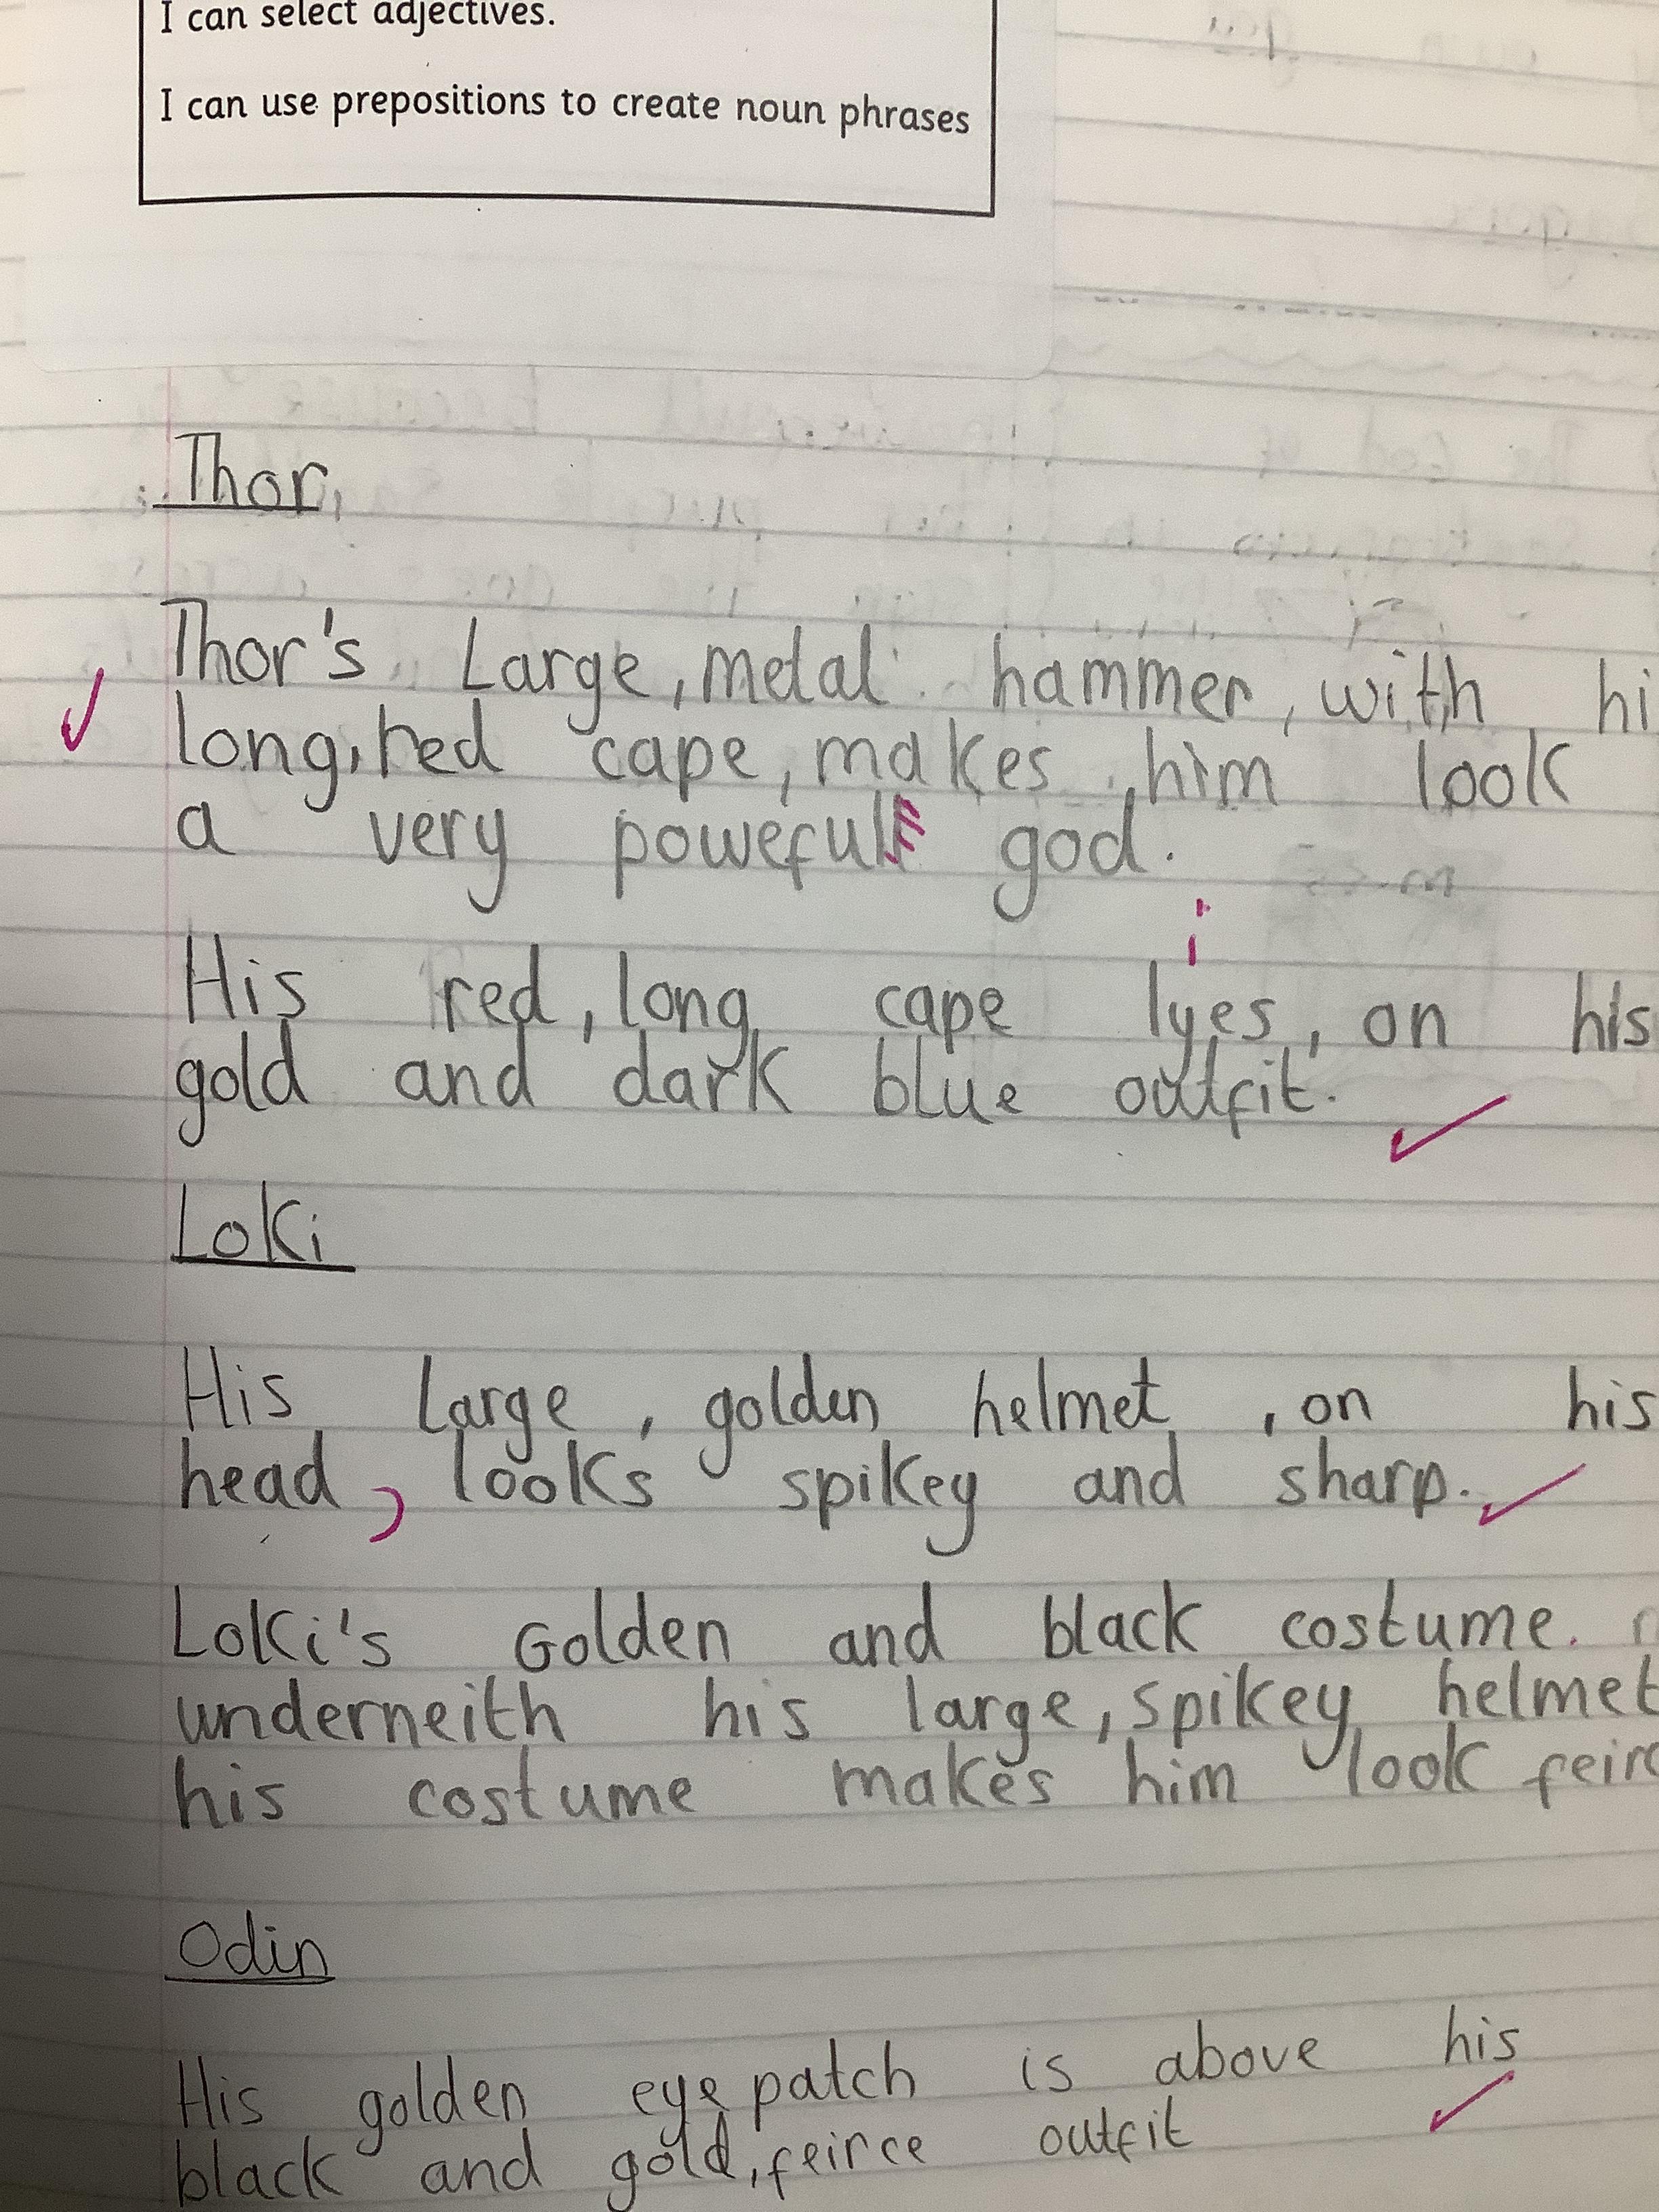 I can select adjectives.
I can use prepositions to create noun phrases
Thor
Thor's Large, metal hammer, with hi
long, red cape, makes him look
a very powefull god.
i
His red, long cape lyes, on his
gold and dark blue outfit.
Loki
His Large, golden helmet, on his
head, looks spikey and sharp.
Loki's Golden and black costume.
underneith his large, spikey helmet
his costume makes him look feirc
Odin
His golden eye patch is above his
black and gold, feirce outfit